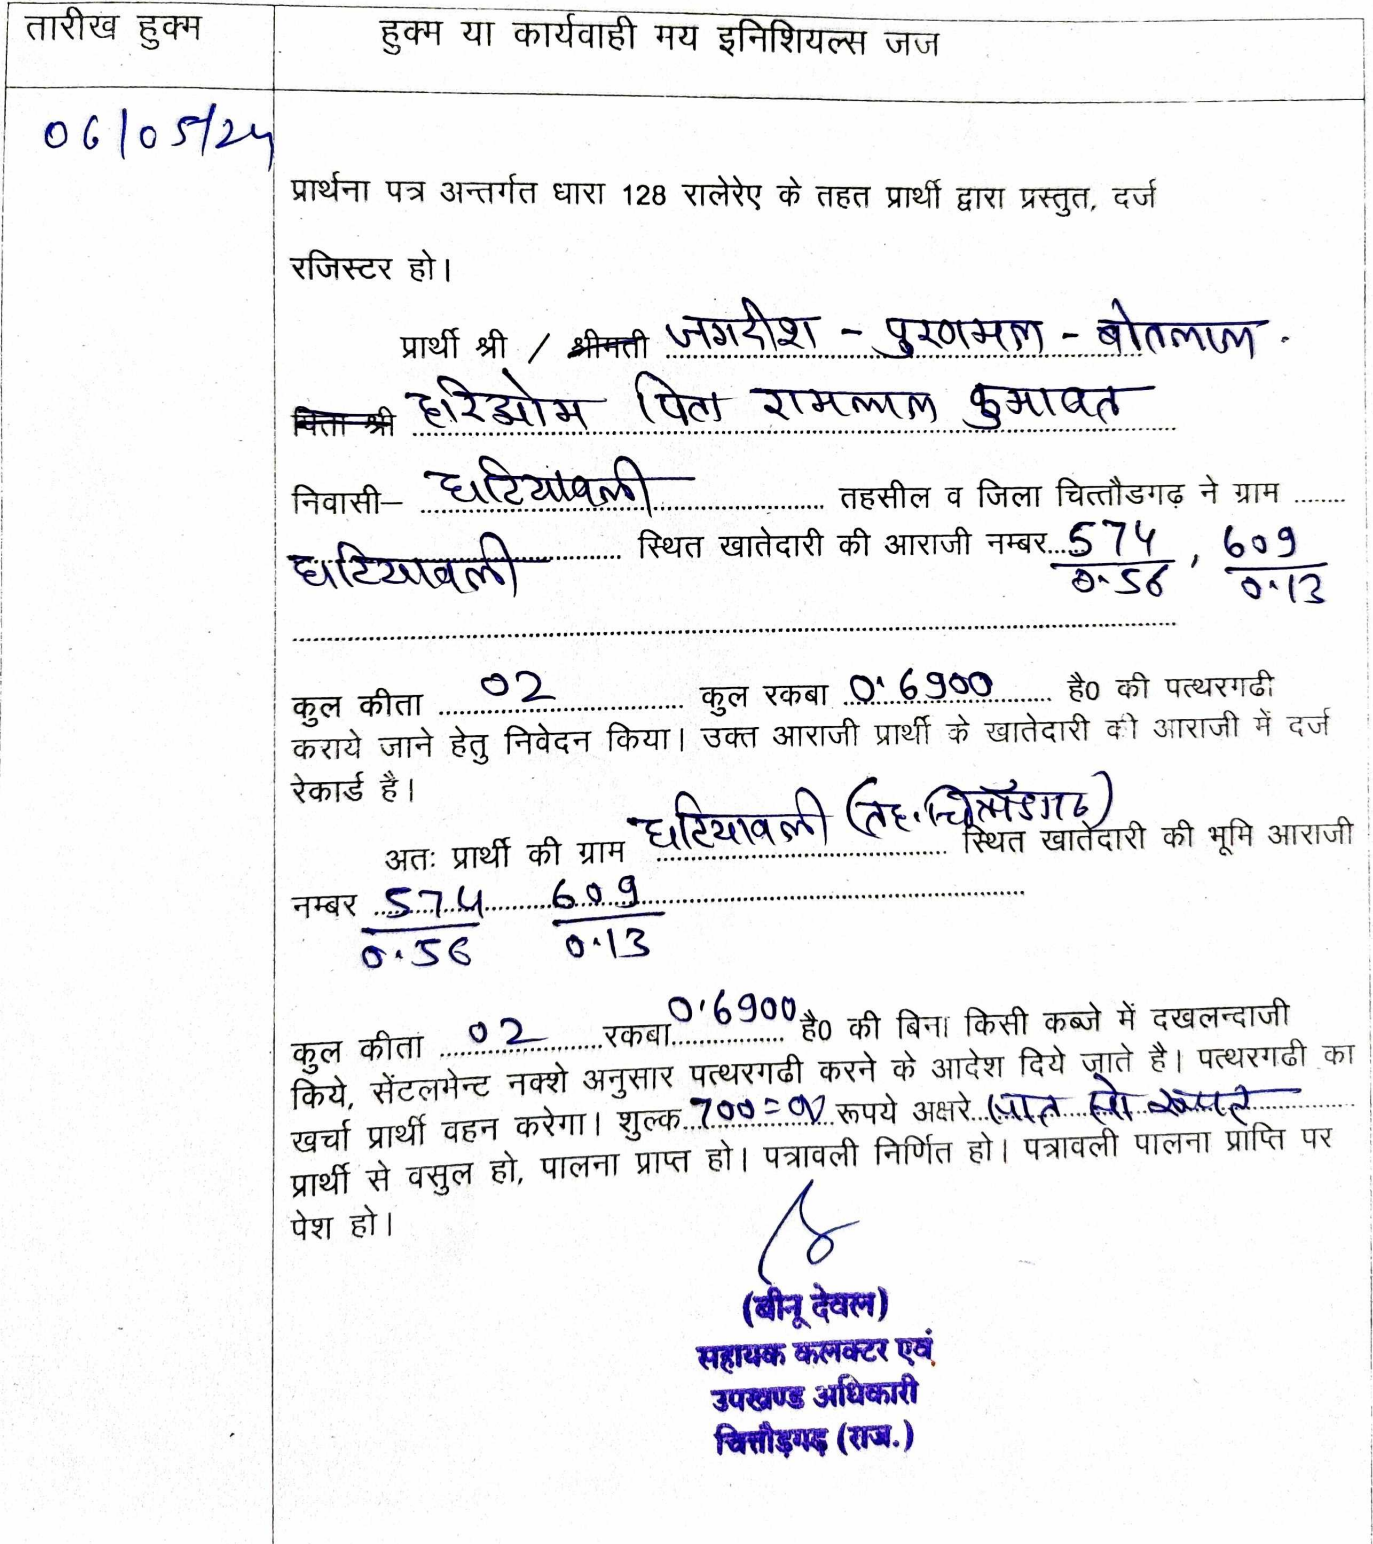 तारीख हुक्म
हुक्म या कार्यवाही मय इनिशियल्स जज
06/05/24
प्रार्थना पत्र अन्तर्गत धारा 128 रालेरेए के तहत प्रार्थी द्वारा प्रस्तुत, दर्ज
रजिस्टर हो।
प्रार्थी श्री / श्रीमती जगदीश - पुरणमल -
पिता श्री हरिओम पिता रामलाल कुमावत
निवासी– घटियावली तहसील व जिला चित्तौडगढ़ ने ग्राम
घटियावली स्थित खातेदारी की आराजी नम्बर 574 , 609
0.56 0.13
कुल कीता 02 कुल रकबा 0.6900 है0 की पत्थरगढी
कराये जाने हेतु निवेदन किया। उक्त आराजी प्रार्थी के खातेदारी की आराजी में दर्ज
रेकार्ड है।
अतः प्रार्थी की ग्राम घटियावली (तह. चित्तौडगढ) स्थित खातेदारी की भूमि आराजी
नम्बर 574 609
0.56 0.13
कुल कीता 02 रकबा 0.6900 है0 की बिना किसी कब्जे में दखलन्दाजी
किये, सेंटलमेन्ट नक्शे अनुसार पत्थरगढी करने के आदेश दिये जाते है। पत्थरगढी का
खर्चा प्रार्थी वहन करेगा। शुल्क 700=00 रूपये अक्षरे सात सो रूपये
प्रार्थी से वसुल हो, पालना प्राप्त हो। पत्रावली निर्णित हो। पत्रावली पालना प्राप्ति पर
पेश हो।
(बीनू देवल)
सहायक कलक्टर एवं
उपखण्ड अधिकारी
चित्तौड़गढ़ (राज.)